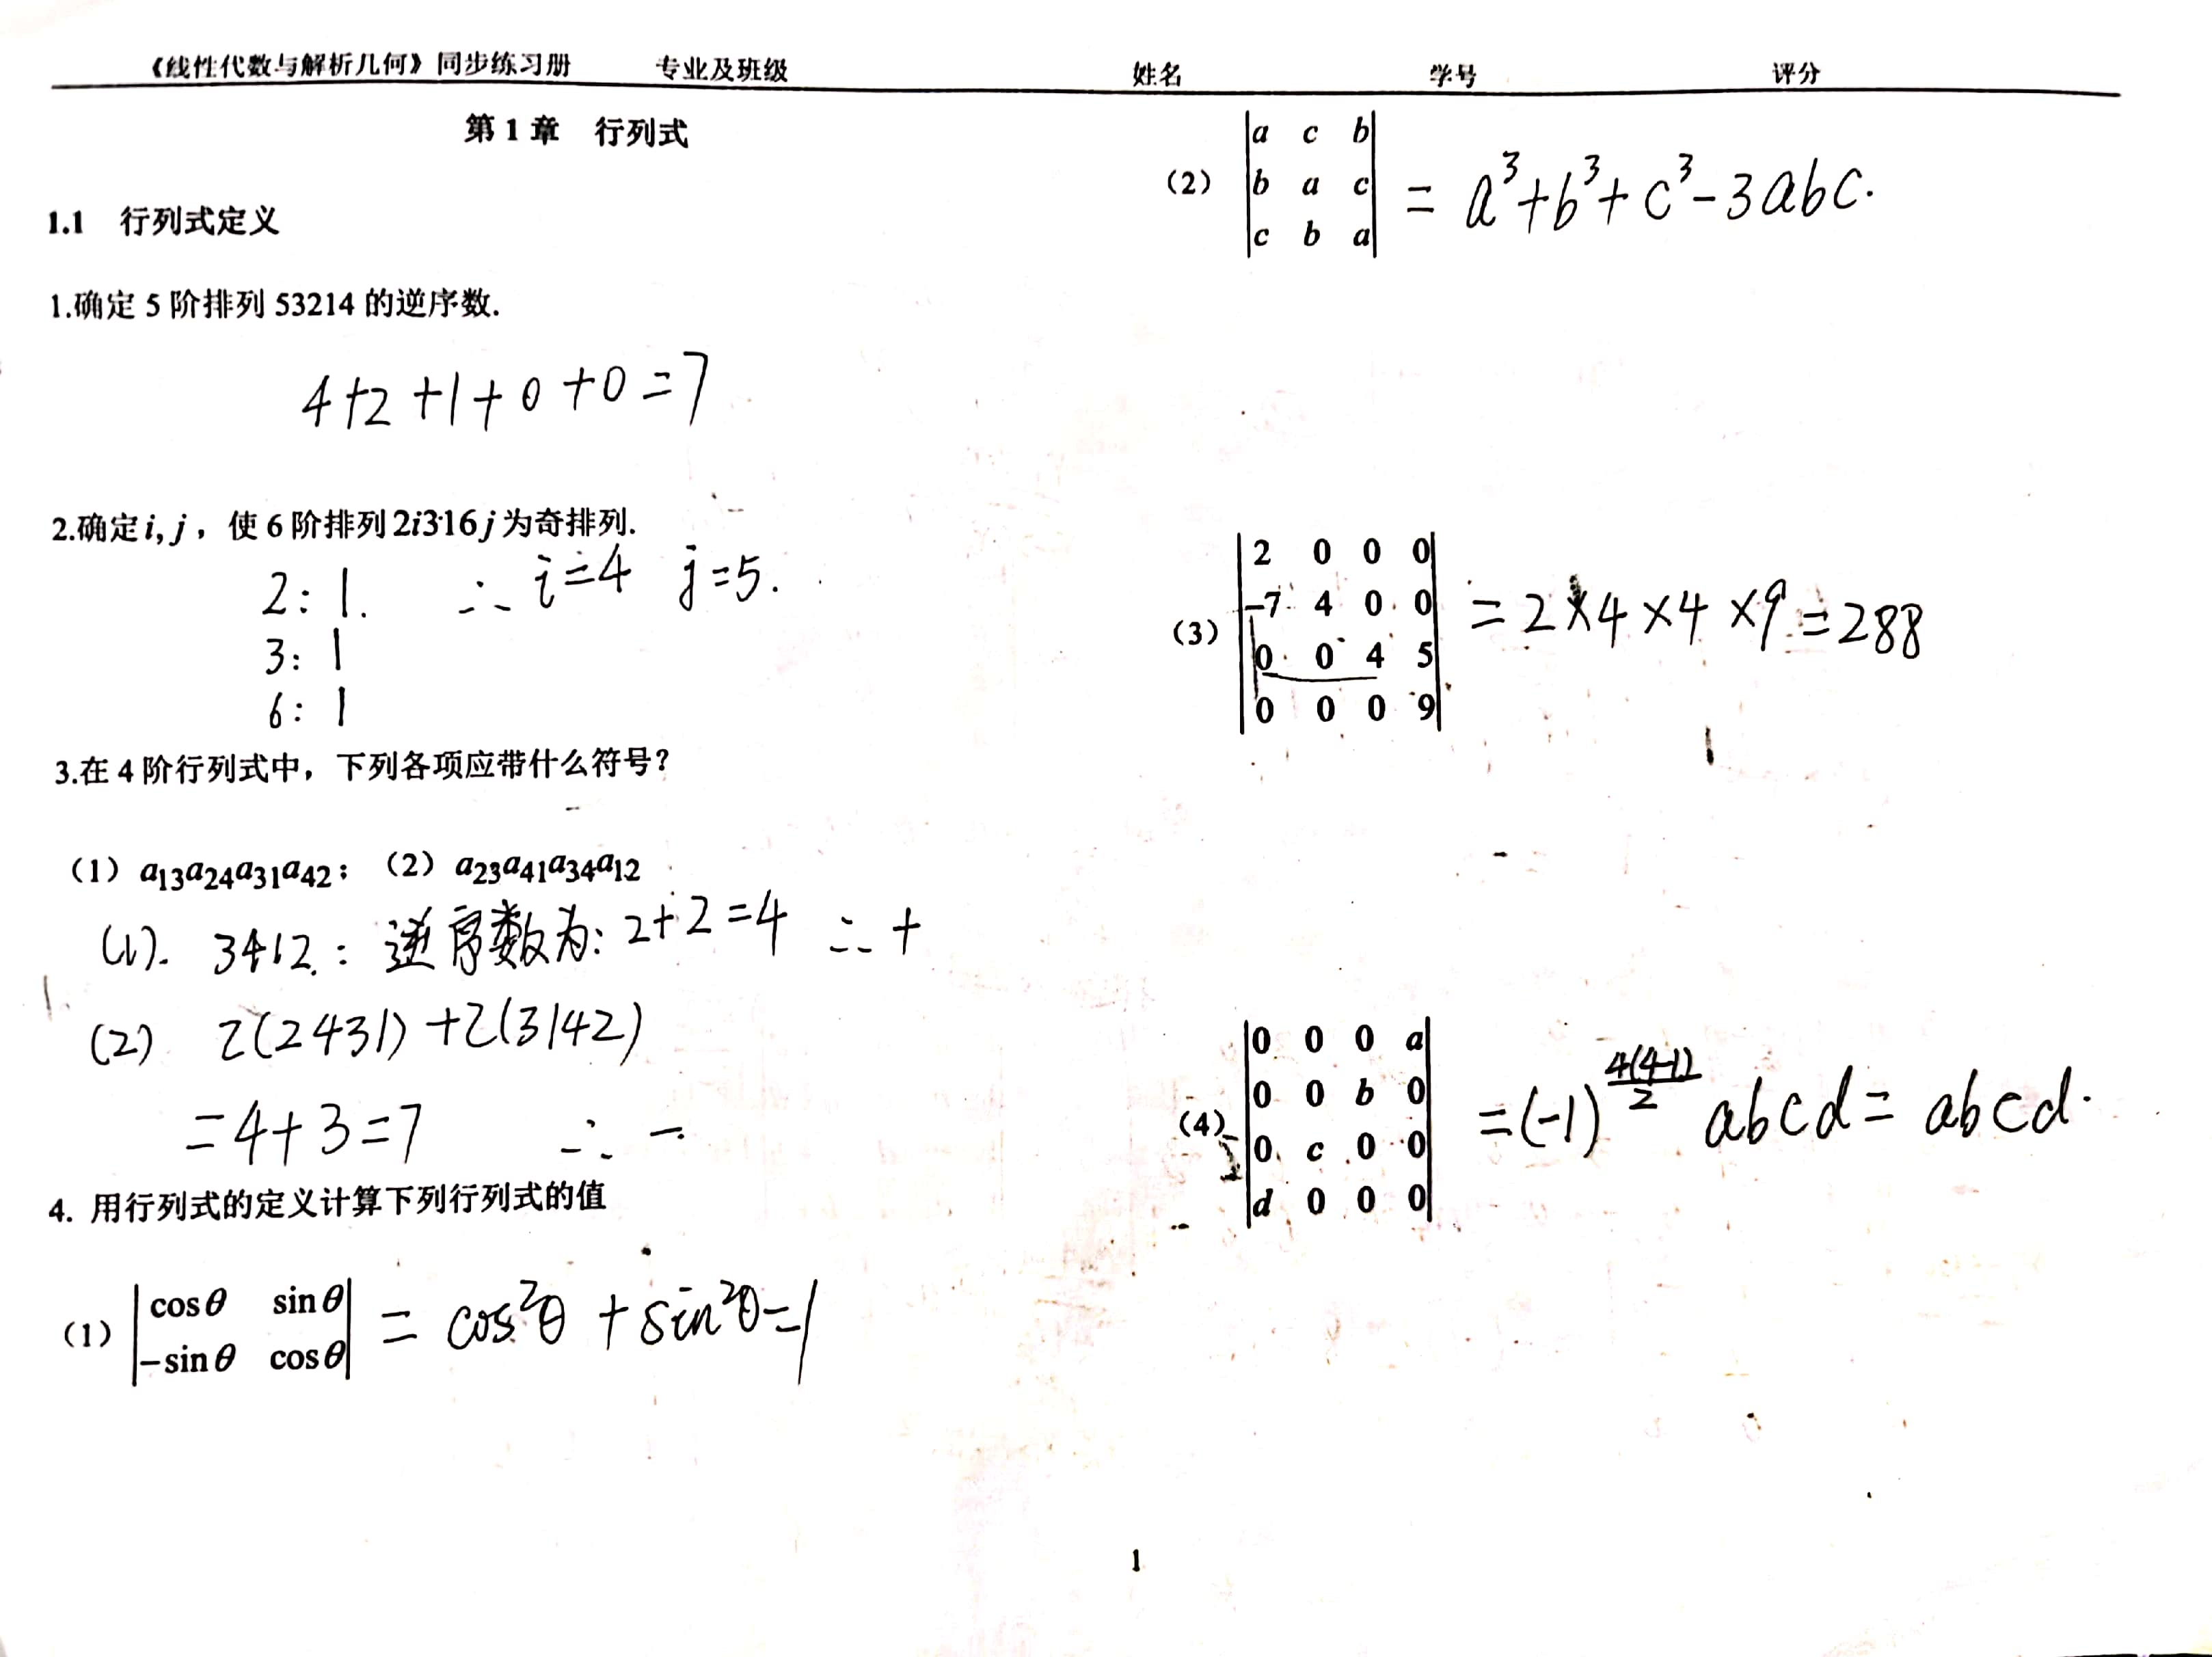 《线性代数与解析几何》同步练习册 专业及班级 姓名 学号 评分
第 1 章 行列式
1.1 行列式定义
1.确定 5 阶排列 53214 的逆序数.
4+2+1+0+0=7
2.确定 i, j ，使 6 阶排列 2i316j 为奇排列.
2: 1. ∴ i=4 j=5.
3: 1
6: 1
3.在 4 阶行列式中，下列各项应带什么符号？
（1）a₁₃a₂₄a₃₁a₄₂；（2）a₂₃a₄₁a₃₄a₁₂
(1). 3412. : 逆序数为: 2+2=4 ∴ +
(2) τ(2431)+τ(3142)
=4+3=7 ∴ -.
4. 用行列式的定义计算下列行列式的值
（1） |cosθ sinθ|
|−sinθ cosθ| = cos²θ + sin²θ=1
|a c b|
（2） |b a c| = a³+b³+c³-3abc.
|c b a|
|2 0 0 0|
|−7 4 0 0| = 2×4×4×9=288
（3） |0 0 4 5|
|0 0 0 9|
|0 0 0 a|
|0 0 b 0|
（4） |0 c 0 0| =(-1)^(4(4-1)/2) abcd= abcd.
|d 0 0 0|
1